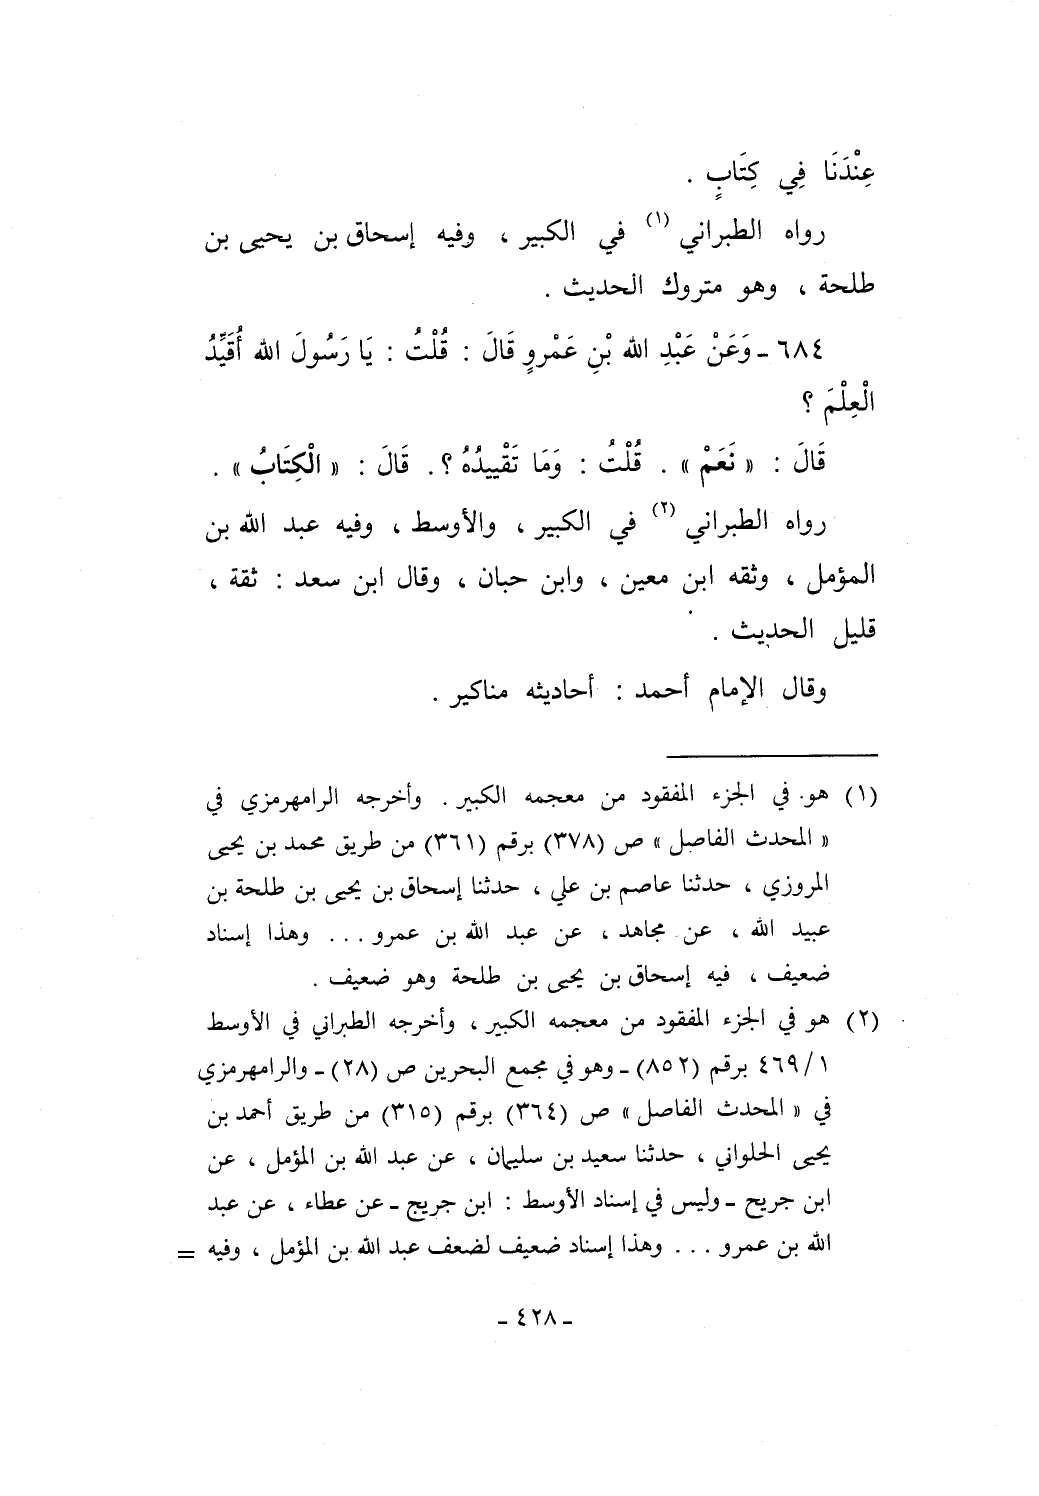 عِنْدَنَا فِي كِتَابٍ .
رواه الطبراني (١) في الكبير ، وفيه إسحاق بن يحيى بن
طلحة ، وهو متروك الحديث .
٦٨٤ ـ وَعَنْ عَبْدِ الله بْنِ عَمْرٍو قَالَ : قُلْتُ : يَا رَسُولَ الله أُقَيِّدُ
الْعِلْمَ ؟
قَالَ : « نَعَمْ » . قُلْتُ : وَمَا تَقْيِيدُهُ ؟ . قَالَ : « الْكِتَابُ » .
رواه الطبراني (٢) في الكبير ، والأوسط ، وفيه عبد الله بن
المؤمل ، وثقه ابن معين ، وابن حبان ، وقال ابن سعد : ثقة ،
قليل الحديث .
وقال الإمام أحمد : أحاديثه مناكير .
(١) هو في الجزء المفقود من معجمه الكبير . وأخرجه الرامهرمزي في
« المحدث الفاصل » ص (٣٧٨) برقم (٣٦١) من طريق محمد بن يحيى
المروزي ، حدثنا عاصم بن علي ، حدثنا إسحاق بن يحيى بن طلحة بن
عبيد الله ، عن مجاهد ، عن عبد الله بن عمرو . . . وهذا إسناد
ضعيف ، فيه إسحاق بن يحيى بن طلحة وهو ضعيف .
(٢) هو في الجزء المفقود من معجمه الكبير ، وأخرجه الطبراني في الأوسط
١/ ٤٦٩ برقم (٨٥٢) ـ وهو في مجمع البحرين ص (٢٨) ـ والرامهرمزي
في « المحدث الفاصل » ص (٣٦٤) برقم (٣١٥) من طريق أحمد بن
يحيى الحلواني ، حدثنا سعيد بن سليمان ، عن عبد الله بن المؤمل ، عن
ابن جريح ـ وليس في إسناد الأوسط : ابن جريج ـ عن عطاء ، عن عبد
الله بن عمرو . . . وهذا إسناد ضعيف لضعف عبد الله بن المؤمل ، وفيه =
ـ ٤٢٨ ـ